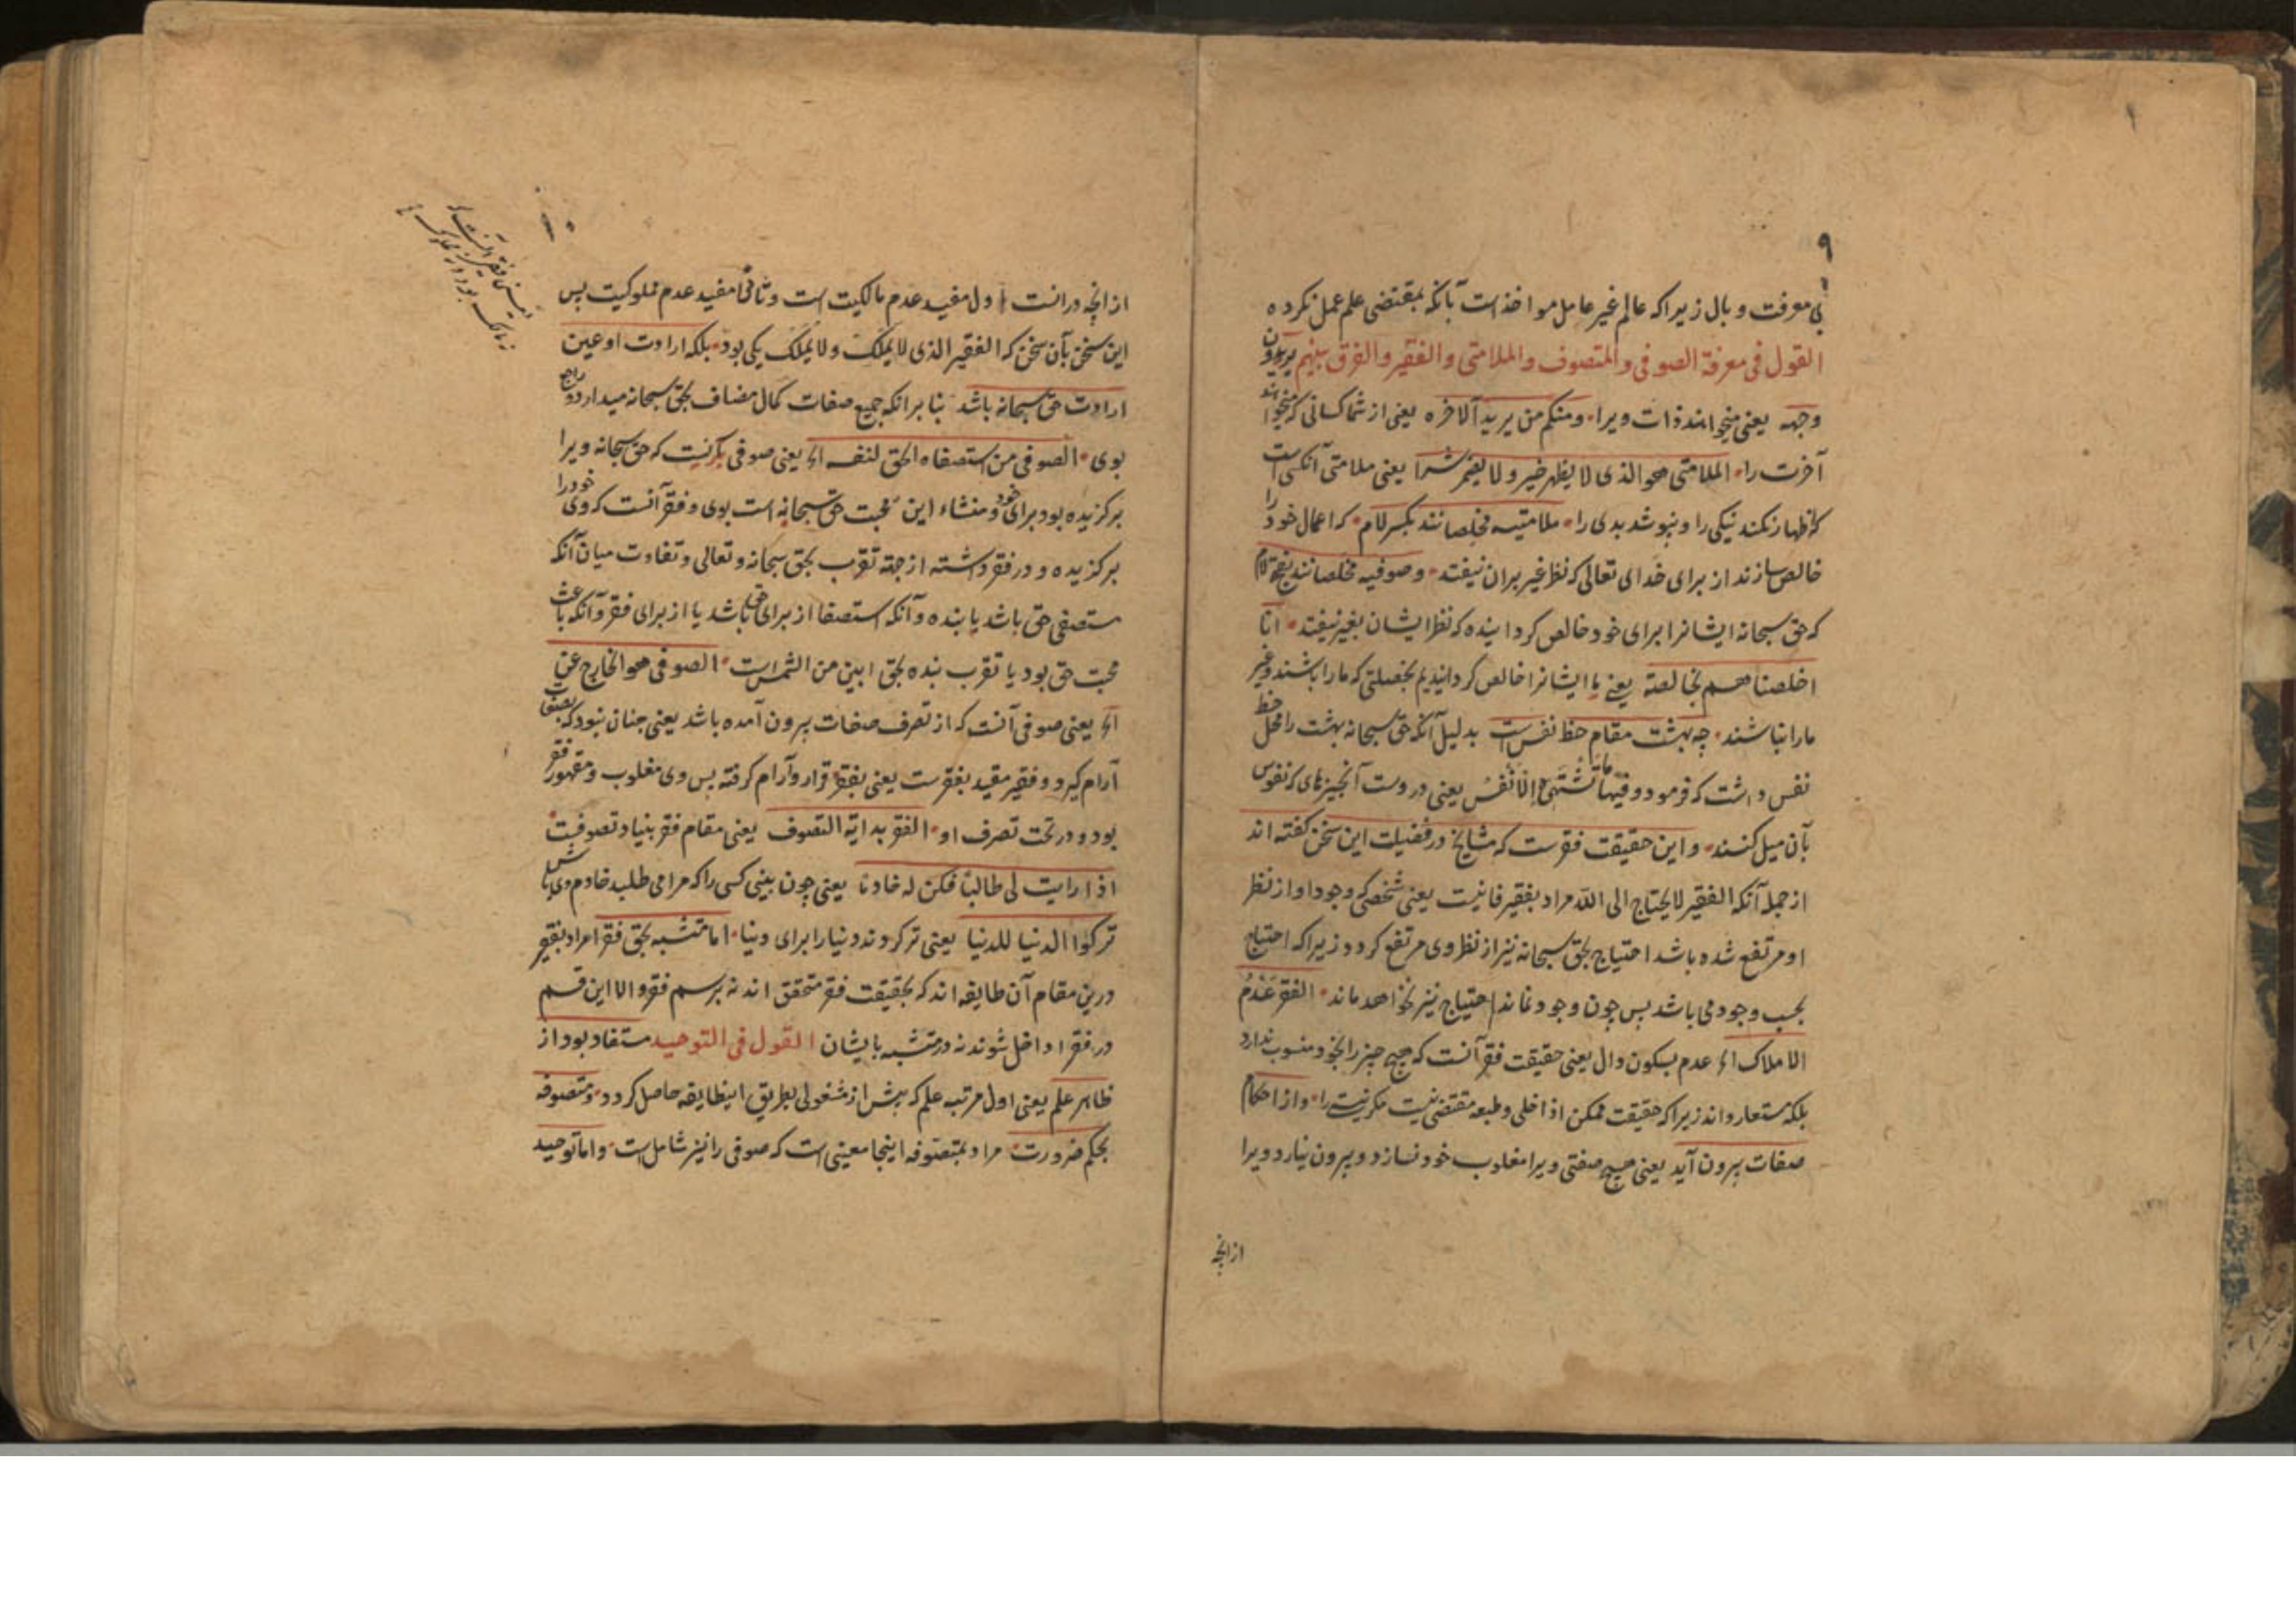 ۹
بی معرفت وبال زیراکه عالم غیر عامل مواخذ است بآنکه بمقتضی علم عمل نکرده
القول فی معرفة الصوفی والمتصوف والملامتی والفقیر والفرق بینهم یریدون
وجهه یعنی میخواهند ذات ویرا ومنکم من یرید الآخره یعنی از شما کسانی که میخواهند
آخرت را الملامتی هو الذی لا یظهر خیر و لا یضمر شرا یعنی ملامتی آنکسی است
که اظهار نکند نیکی را و نپوشد بدی را ملامتیه مخلصانند بکسر لام که اعمال خود را
خالص سازند از برای خدای تعالی که نظر غیر بران نیفتد وصوفیه مخلصانند بفتح لام
که حق سبحانه ایشانرا برای خود خالص کردانیده که نظر ایشان بغیر نیفتد انا
اخلصناهم بخالصة یعنی ما ایشانرا خالص کردانیدیم بخصلتی که ما را باشند وغیر
ما را نباشند چه بهشت مقام حظ نفس است بدلیل آنکه حق سبحانه بهشت را محل حظ
نفس داشت که فرمود وفیها ما تَشْتَهِی الْاَنْفُسُ یعنی دروست آنچیزهای که نفوس
بآن میل کنند واین حقیقت فقرست که مشایخ در فضیلت این سخن کفته اند
از جمله آنکه الفقیر لا یحتاج الی الله مراد بفقیر فانیست یعنی شخصی که وجود او از نظر
او مرتفع شده باشد احتیاج بحق سبحانه نیز از نظر وی مرتفع کردد زیراکه احتیاج
بحسب وجود می باشد پس چون وجود نماند احتیاج نیز نخواهد ماند الفقر عَدْمُ
الاملاک الخ عدم بسکون دال یعنی حقیقت فقر آنست که هیچ چیز را بخود منسوب ندارد
بلکه مستعار داند زیراکه حقیقت ممکن اذا خلی وطبعه مقتضی نیست مکر نیستی را واز احکام
صفات بیرون آید یعنی هیچ صفتی ویرا مغلوب خود نسازد و بیرون نیارد ویرا
ازانچه
۱۰
ازانچه درانست اول مفید عدم مالکیت است وثانی مفید عدم مملوکیت پس
این سخن بآن سخن که الفقیر الذی لا یملک ولا یملک یکی بود بلکه ارادت او عین
ارادت حق سبحانه باشد بنا برانکه جمیع صفات کمال مضاف بحق سبحانه میدارد و راجع
بوی الصوفی من استصفاه الحق لنفسه الخ یعنی صوفی بآن کسیست که حق سبحانه ویرا
برکزیده بود برای خود ومنشاء این محبت حق سبحانه است بوی وفقر آنست که وی خود را
برکزیده و در فقر داشته از جهة تقرب بحق سبحانه وتعالی وتفاوت میان آنکه
مستصفی حق باشد یا بنده وآنکه استصفا از برای حق باشد یا از برای فقر وآنکه باعث
محبت حق بود یا تقرب بنده بحق ابین من الشمس است الصوفی هو الخارج عن
الخ یعنی صوفی آنست که از تصرف صفات بیرون آمده باشد یعنی چنان نبود که بصفات
آرام کیرد وفقیر مقید بفقرست یعنی بفقر قرار وآرام کرفته پس وی مغلوب ومقهور فقر
بود ودر تحت تصرف او الفقر بدایة التصوف یعنی مقام فقر بنیاد تصوفست
اذا رایت لی طالبا فکن له خادما یعنی چون بینی کسی را که مرا می طلبد خادم وی باش
ترکوا الدنیا للدنیا یعنی ترک کردند دنیا را برای دنیا اما متشبه بحق فقرا مراد بفقیر
درین مقام آن طایفه اند که بحقیقت فقر متحقق اند نه برسم فقر والا این قسم
در فقرا داخل شوند نه در متشبه بایشان القول فی التوحید مستفاد بود از
ظاهر علم یعنی اول مرتبه علم که پیش از مشغولی بطریق اینطایفه حاصل کردد ومتصوفه
بحکم ضرورت مراد بمتصوفه اینجا معنیی است که صوفی را نیز شامل است واما توحید